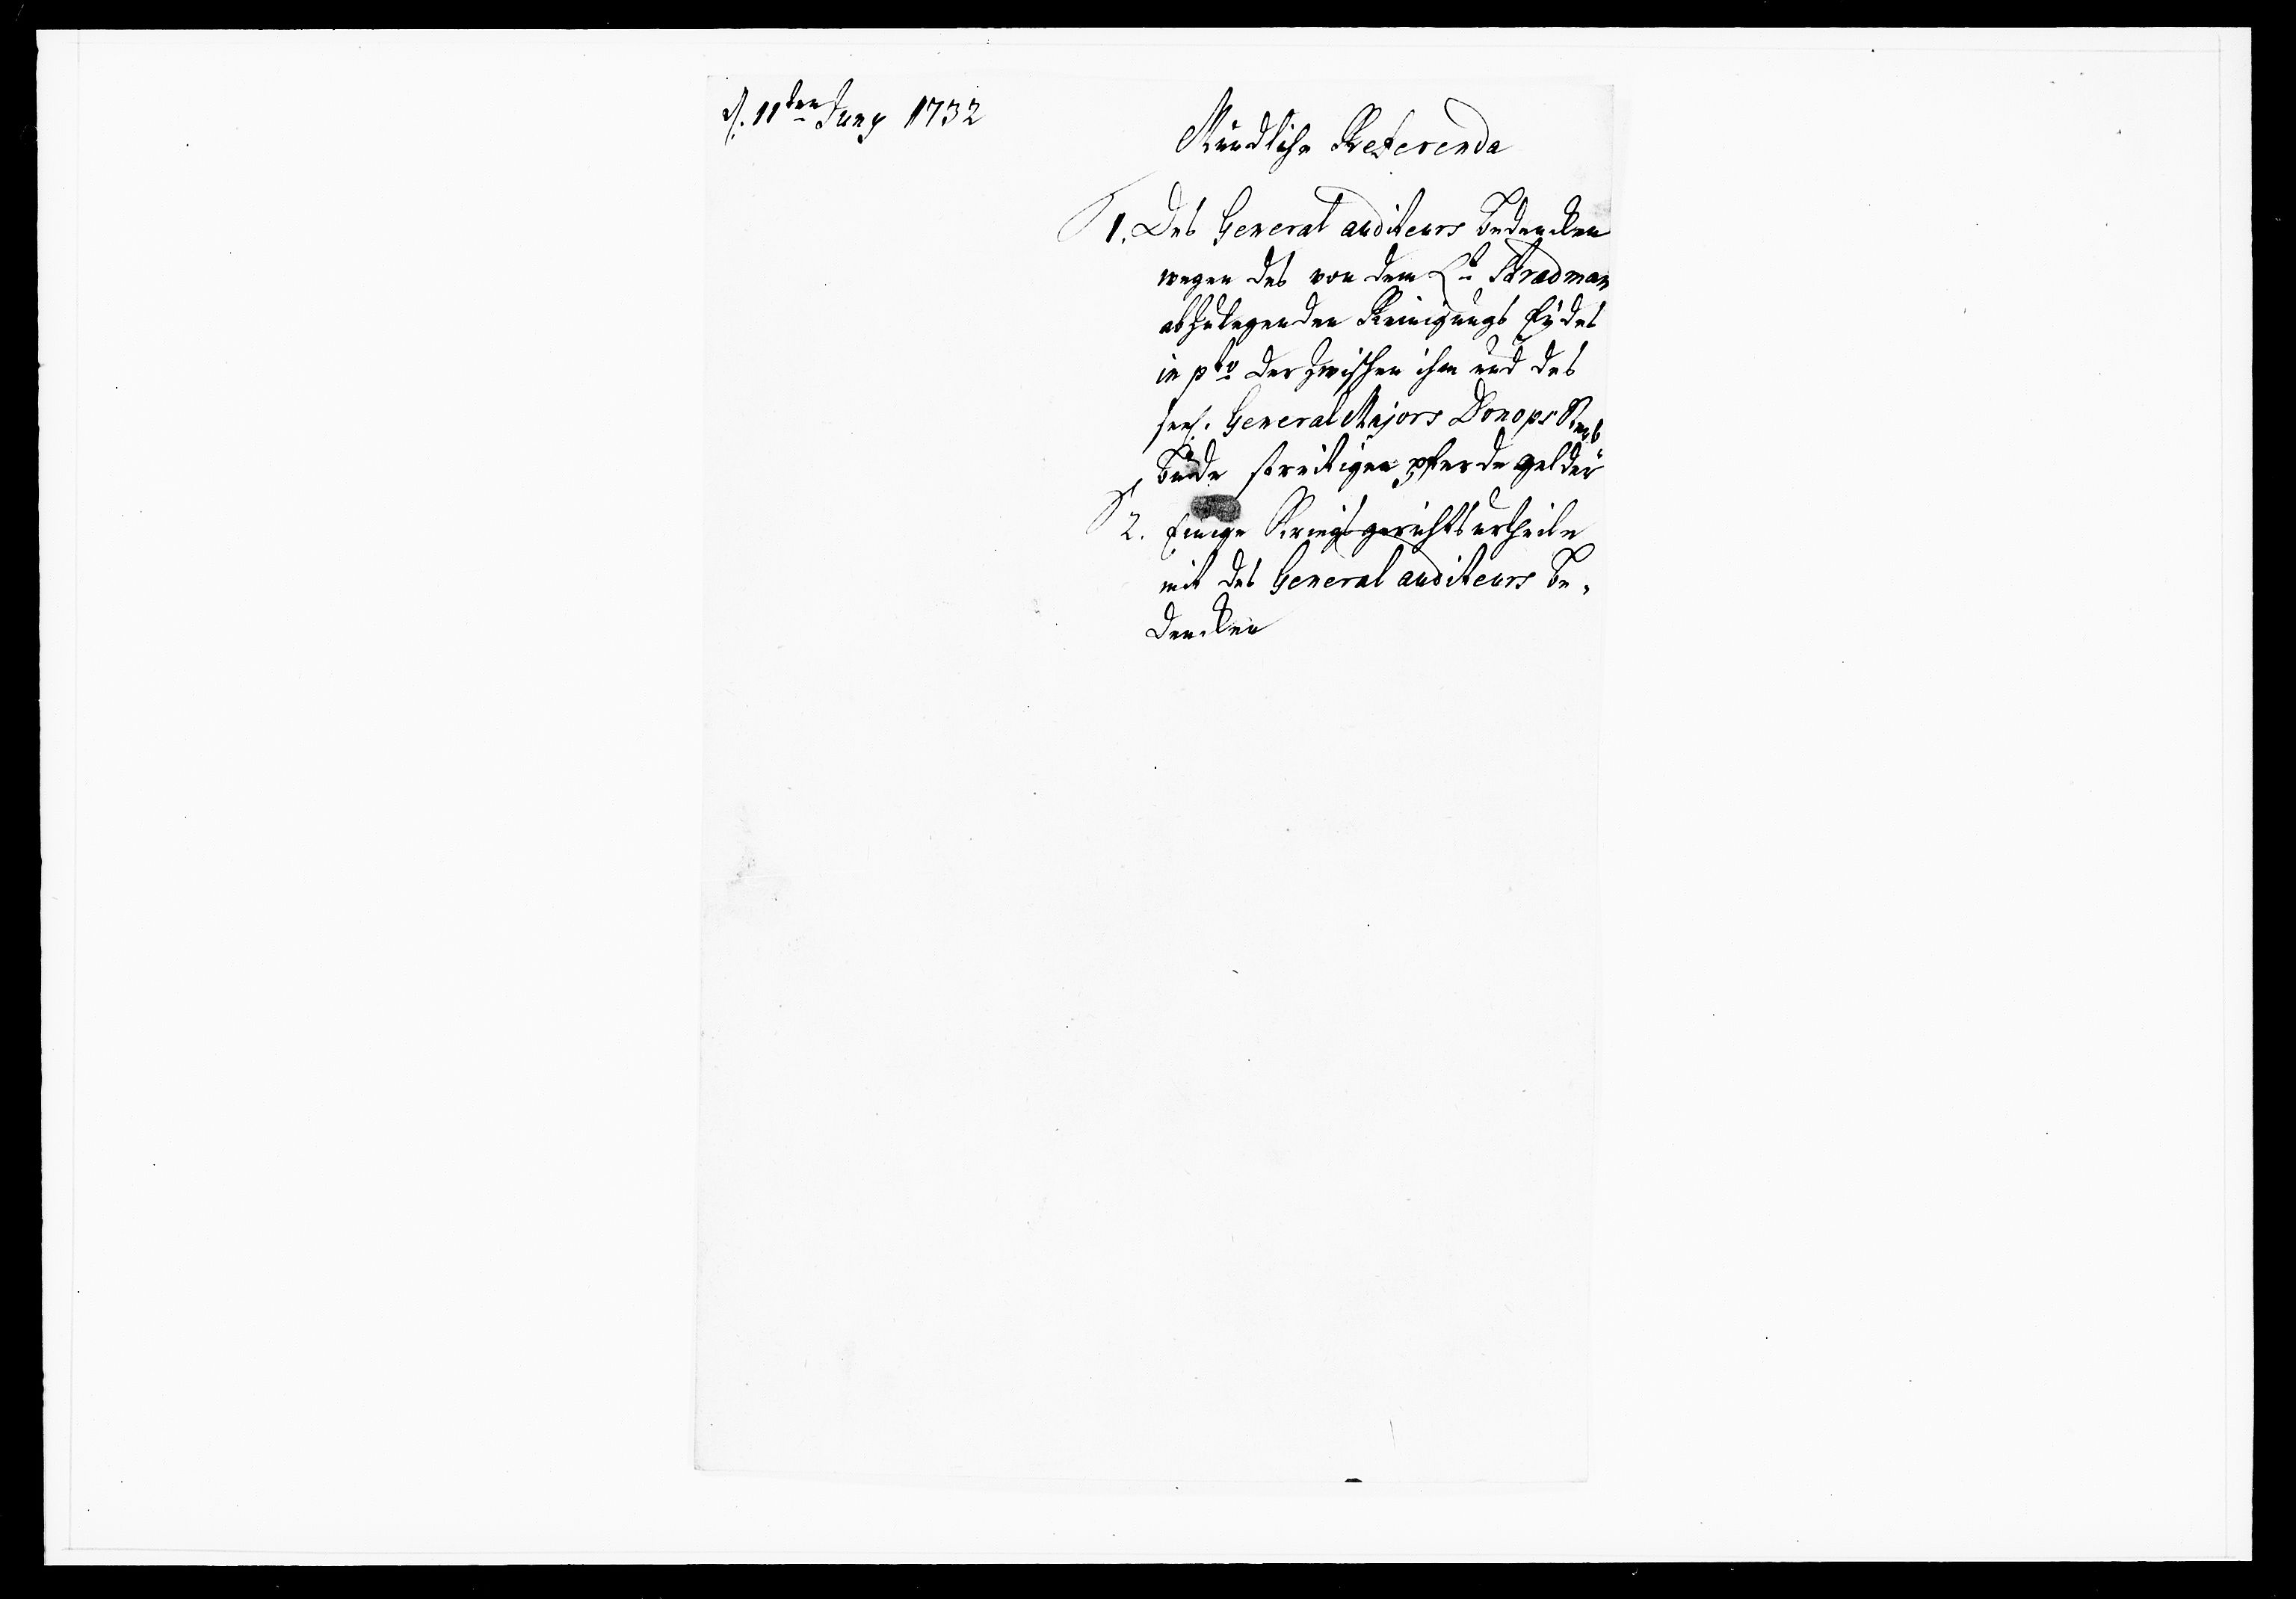 d. 11ten Juny 1732
Mündliche Referenda
1. Des General auditeurs Bedencken
wegen des von dem Lt Stradman
abzulegenden Reinigungs Eydes
in pto der zwischen ihm und des
seel. General Majors Donops
Bude streitigen pferde gelder
2. Einige Kriegsgerichtsurtheile
mit des General auditeurs Be-
dencken